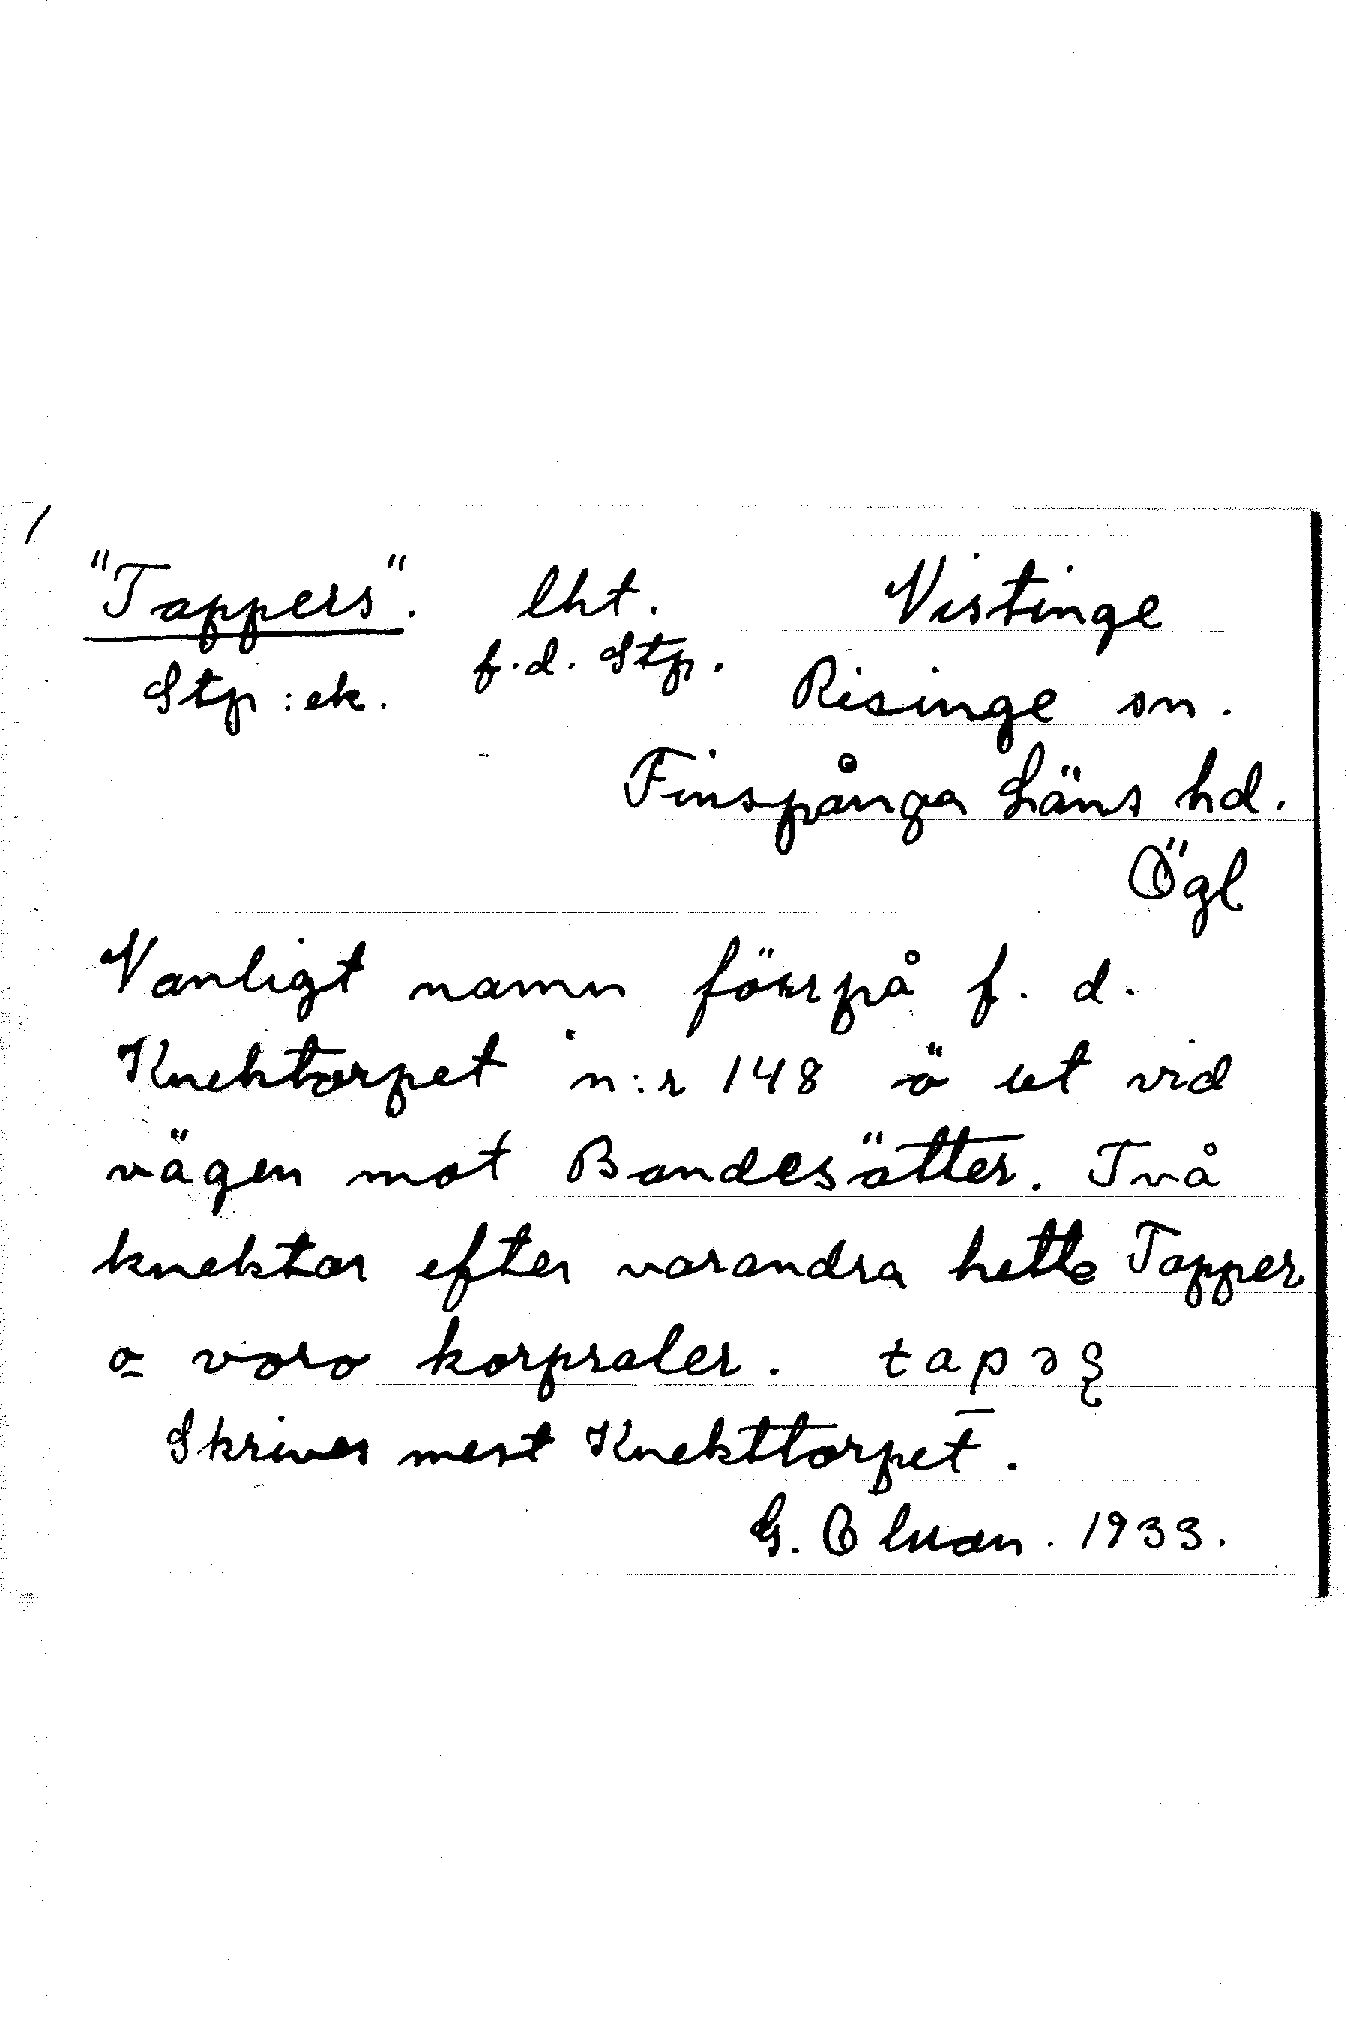 "Tappers". lht. Vistinge
Stp:ek. f.d. Stp. Risinge sn.
Finspånga Läns hd.
Ögl
Vanligt namn förr på f. d.
Knektorpet n:r 148 ö ut vid
vägen mot Bondesätter. Två
knektar efter varandra hette Tapper
o voro korpraler. tapəȿ
Skrives mest Knekttorpet.
G. Oluan. 1933.